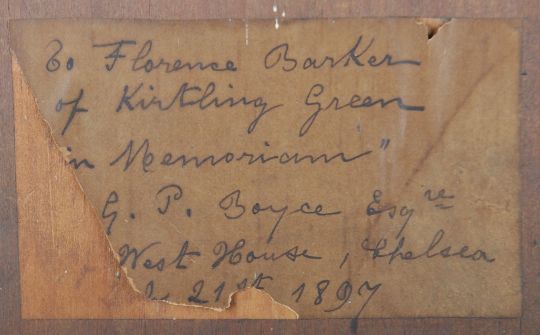 To Florence Barker
of Kirtling Green
in Memoriam"
G. P. Boyce Esqre
West House, Chelsea
21st 1897